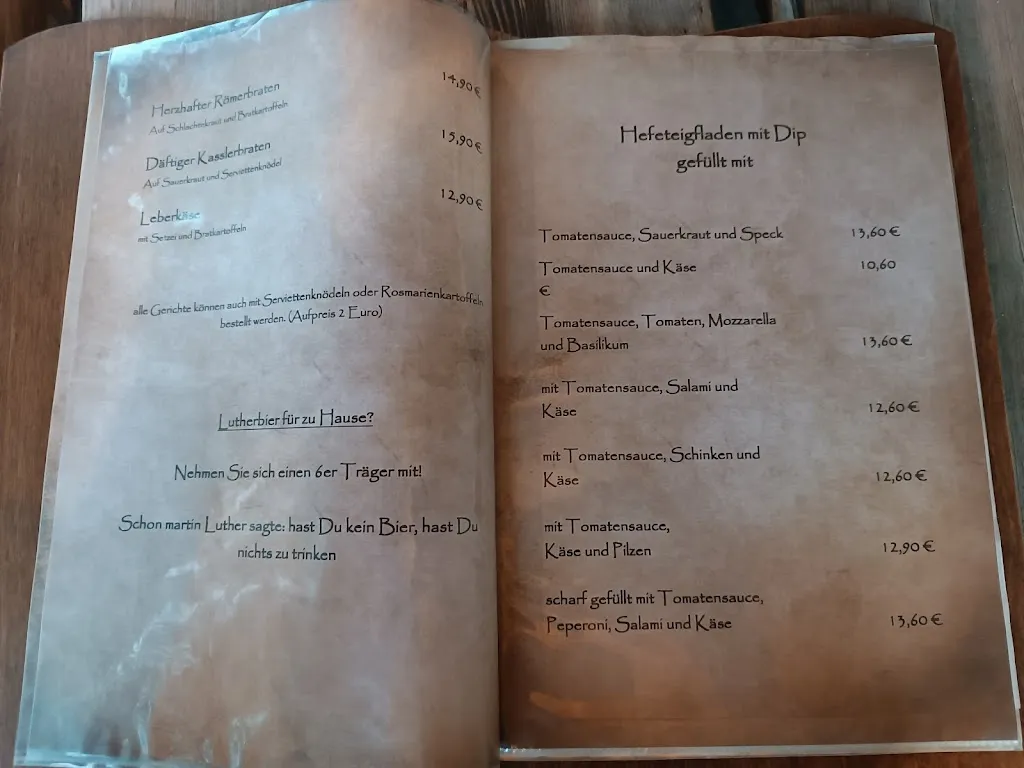 Herzhafter Römerbraten 14,90€
Auf Schlachtekraut und Bratkartoffeln
Däftiger Kasslerbraten 15,90€
Auf Sauerkraut und Serviettenknödel
Leberkäse 12,90€
mit Setzei und Bratkartoffeln
alle Gerichte können auch mit Serviettenknödeln oder Rosmarienkartoffeln
bestellt werden. (Aufpreis 2 Euro)
Lutherbier für zu Hause?
Nehmen Sie sich einen 6er Träger mit!
Schon martin Luther sagte: hast Du kein Bier, hast Du
nichts zu trinken
Hefeteigfladen mit Dip
gefüllt mit
Tomatensauce, Sauerkraut und Speck 13,60€
Tomatensauce und Käse 10,60
€
Tomatensauce, Tomaten, Mozzarella
und Basilikum 13,60€
mit Tomatensauce, Salami und
Käse 12,60€
mit Tomatensauce, Schinken und
Käse 12,60€
mit Tomatensauce,
Käse und Pilzen 12,90€
scharf gefüllt mit Tomatensauce,
Peperoni, Salami und Käse 13,60€